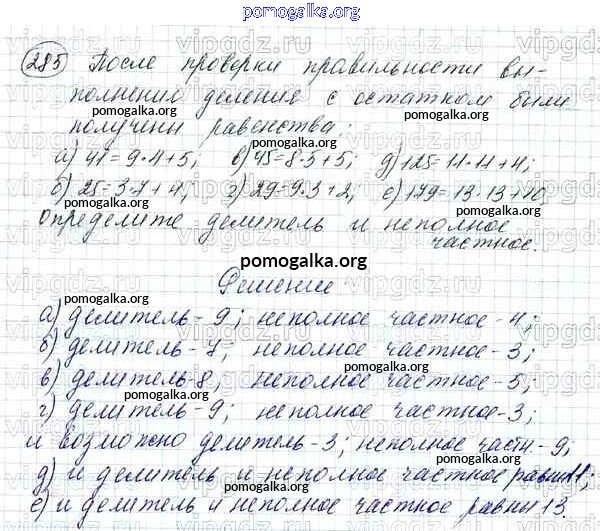 pomogalka.org
285 После проверки правильности вы-
полнения деления с остатком были
pomogalka.org
получены равенства:
pomogalka.org
а) 41=9·4+5; в) 45=8·5+5; д) 125=11·11+4;
б) 25=3·7+4; г) 29=9·3+2; е) 179=13·13+10.
pomogalka.org pomogalka.org
Определите делитель и неполное
частное.
pomogalka.org
Решение
pomogalka.org pomogalka.org
а) делитель-9; неполное частное-4;
pomogalka.org
б) делитель-7; неполное частное-3;
pomogalka.org
в) делитель-8, неполное частное-5;
pomogalka.org
г) делитель-9; неполное частное-3;
и возможно делитель-3; неполное частн.-9;
pomogalka.org
д) и делитель и неполное частное равны 11;
pomogalka.org
е) и делитель и неполное частное равны 13.